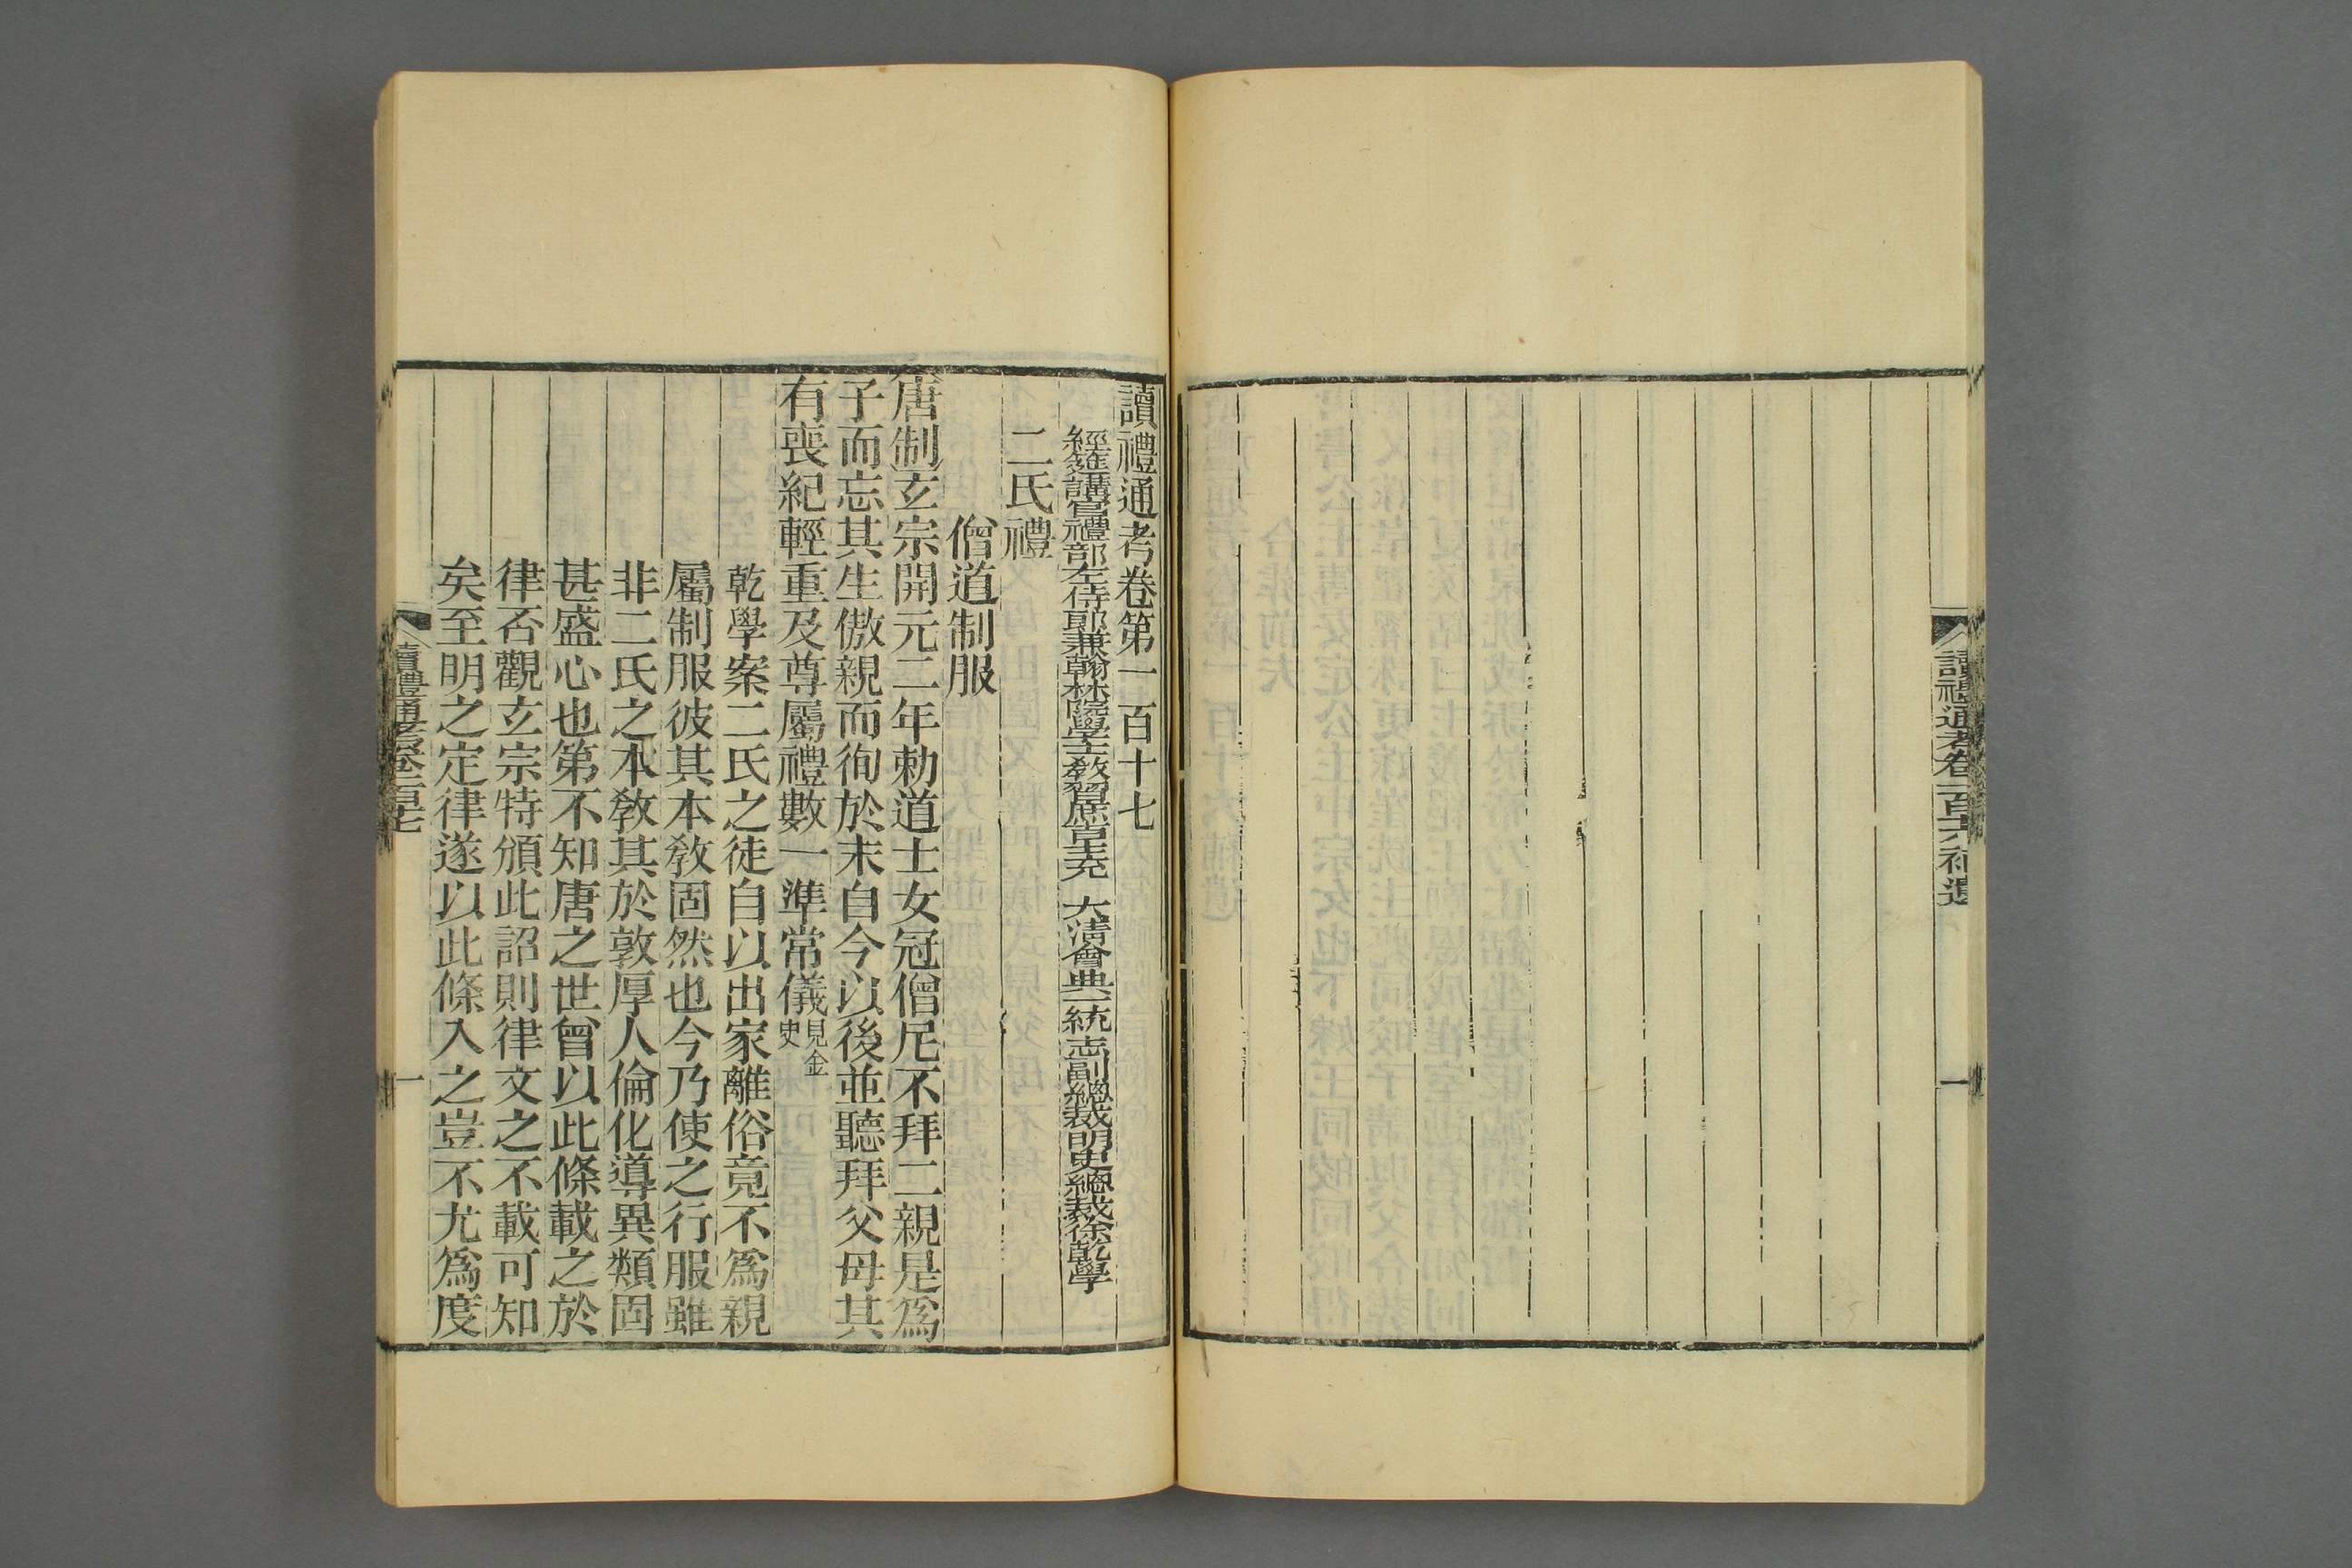 讀禮通考卷一百十六補遺
一
讀禮通考卷第一百十七
經筵講官禮部左侍郎兼翰林院學士敎習庶吉士充 大淸會典一統志副總裁明史總裁徐乾學
二氏禮
僧道制服
唐制玄宗開元二年勅道士女冠僧尼不拜二親是爲
子而忘其生傲親而徇於末自今以後並聽拜父母其
有喪紀輕重及尊屬禮數一準常儀見金史
乾學案二氏之徒自以出家離俗竟不爲親
屬制服彼其本敎固然也今乃使之行服雖
非二氏之本敎其於敦厚人倫化導異類固
甚盛心也第不知唐之世曾以此條載之於
律否觀玄宗特頒此詔則律文之不載可知
矣至明之定律遂以此條入之豈不尤爲度
讀禮通考卷一百十七
一